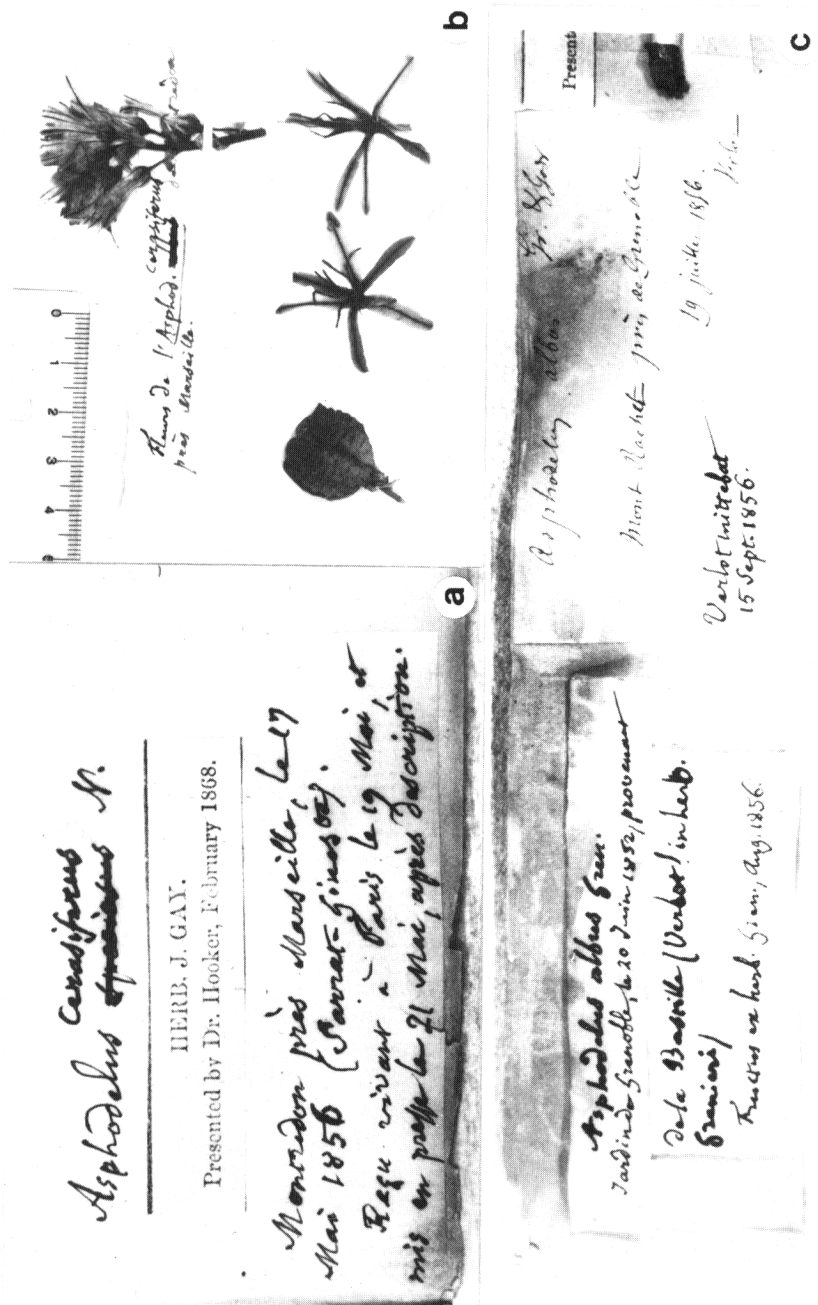 Asphodelus cerasiferus N.
HERB. J. GAY.
Presented by Dr. Hooker, February 1868.
Montredon près Marseille, le 17
Mai 1856 (Sarrat-Gineste).
Reçu vivant à Paris le 19 Mai, et
mis en presse le 21 Mai, après description.
a
0 1 2 3 4
Fleurs de l'Asphod. cerasiferus
près Marseille.
b
Asphodelus albus Gren.
Jardin de Grenoble, le 20 Juin 1852, provenant
de la Bastille (Verlot! in herb.
Grenier)
Fructus ex herb. Gren., Aug. 1856.
Asphodelus albus Gr. & Godr
Mont Rachet près de Grenoble
19 juillet 1856.
Verlot mittebat
15 Sept. 1856.
Present
c